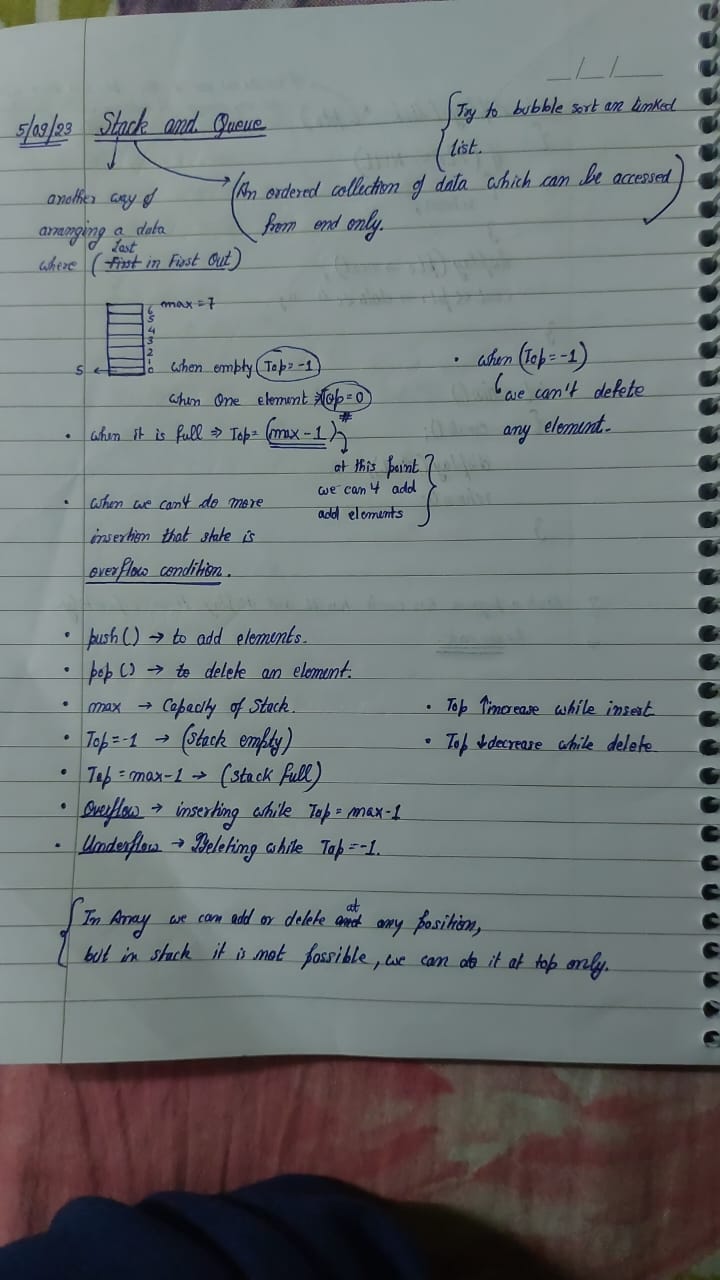 __/__/____
5/09/23 Stack and Queue
{Try to bubble sort an linked
list.
another way of
arranging a data
where (First Last in First Out)
(An ordered collection of data which can be accessed
from end only.)
max = 7
6
5
4
3
2
1
0
S ←
when empty (Top = -1)
when One element Top = 0
#
• when (Top = -1)
↳ we can't delete
any element.
• when it is full ⇒ Top = (max - 1)
at this point
we can't add
add elements
• when we can't do more
insertion that state is
overflow condition.
• push() → to add elements.
• pop() → to delete an element.
• max → Capacity of Stack.
• Top = -1 → (Stack empty)
• Top = max-1 → (stack full)
• Overflow → inserting while Top = max-1
• Underflow → Deleting while Top = -1.
• Top ↑increase while insert
• Top ↓decrease while delete
{In Array we can add or delete at any position,
but in stack it is not possible, we can do it at top only.